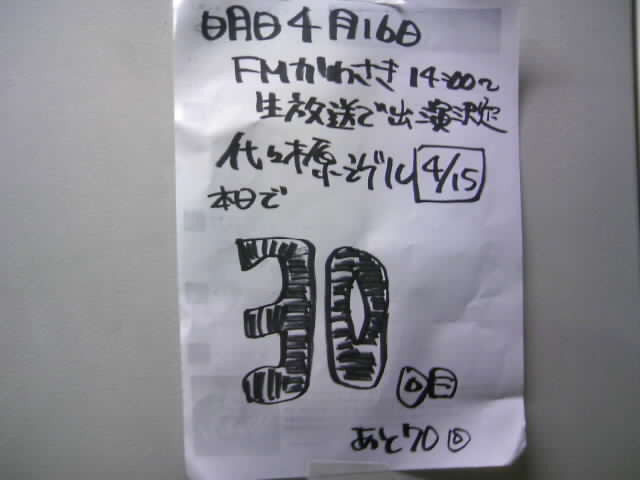 明日4月16日
FMかわさき 14:00〜
生放送で出演決定
代々木原シゲル 4/15
本日で
30
回目
あと70回